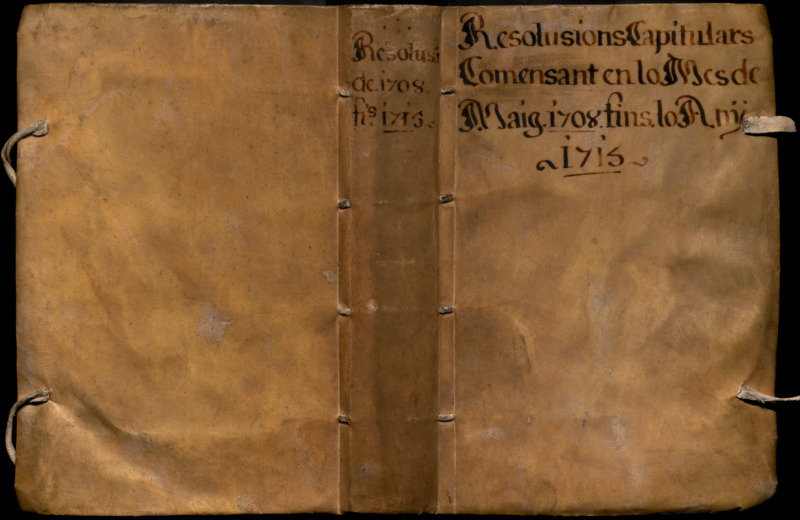 Resolusi
de 1708.
fi.s 1715.
Resolusions Capitulars
Comensant en lo Mes de
Maig. 1708. fins. lo Any
1715